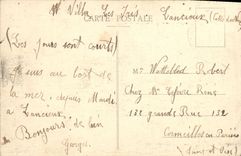 Mr Villa Les Iris Lancieux (Côtes du Nord)
CARTE POSTALE
(Les jours sont courts)
Je suis au bord de
la mer, depuis Mardi
à Lancieux,
Bonjours, de loin
Georges
Mr Watteblet Robert
Chez Mr Lefevre Rens
132 grande Rue 132
Cormeilles en Parisis
(Seine et Oise)